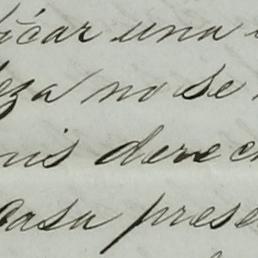 ficar una
eza no se
mis derec
casa prese